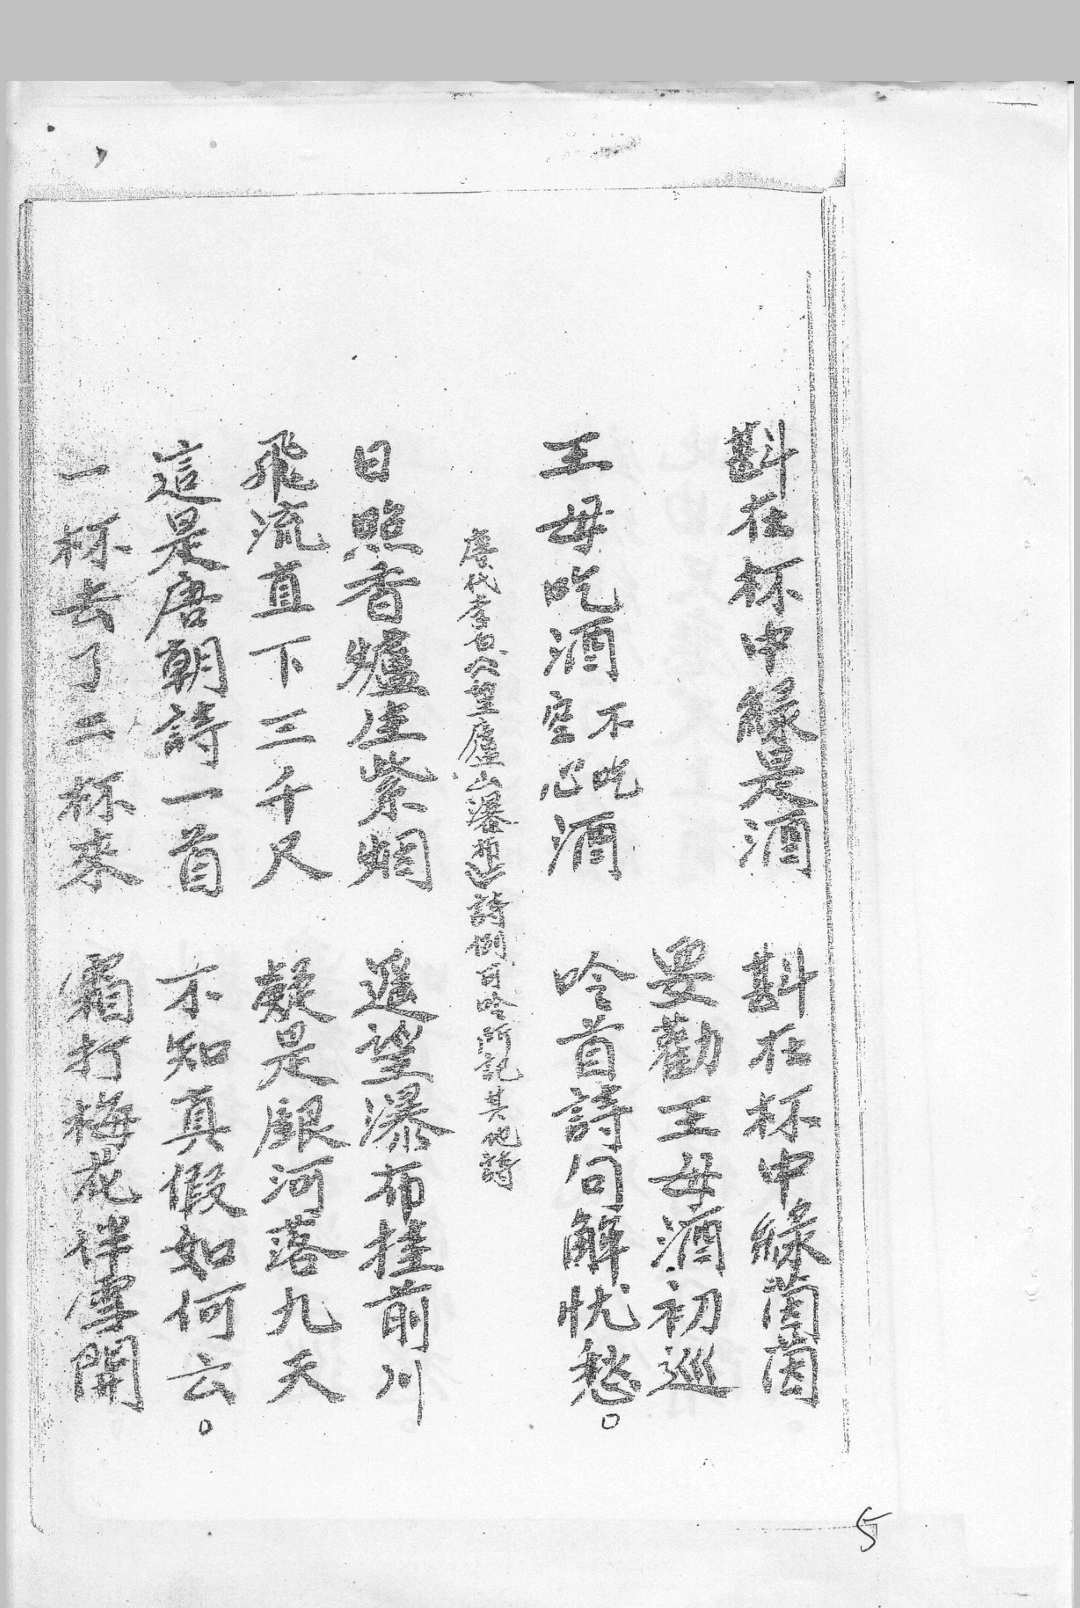 斟在杯中綠是酒　斟在杯中綠茵茵
要勸王母酒初巡
王母吃酒不吃空心酒　吟首詩句解忧愁。
唐代李白《望廬山瀑布》詩例可吟所記其他詩
日照香爐生紫烟　遥望瀑布挂前川
飛流直下三千尺　疑是銀河落九天
這是唐朝詩一首　不知真假如何云。
一杯去了二杯來　霜打梅花伴雪開
5